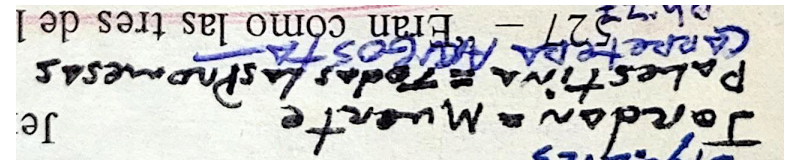 Jordan = Muerte Je
Palestina = Todas Las Promesas
CARRETERA ANGOSTA
527 — Eran como las tres de l